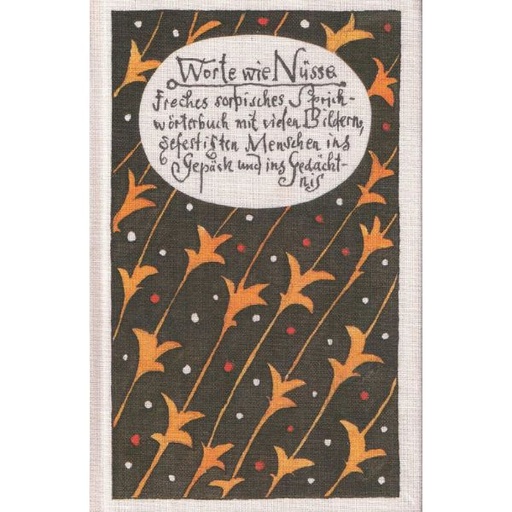 Worte wie Nüsse
Freches sorbisches Sprich-
wörterbuch mit vielen Bildern,
gefestigten Menschen ins
Gepäck und ins Gedächt-
nis